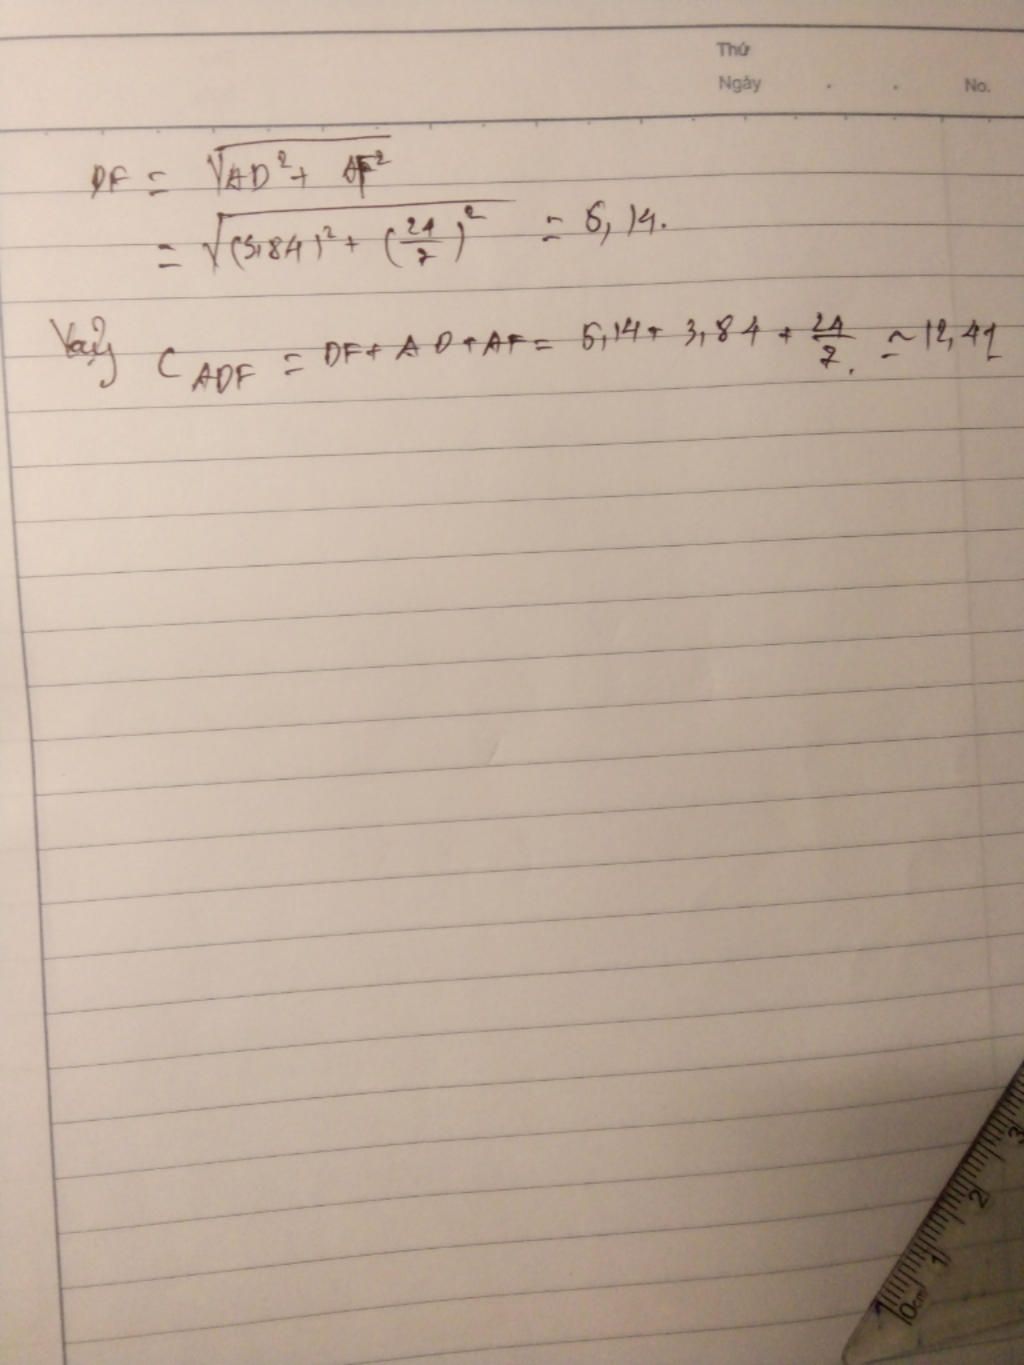 Thứ
Ngày . . No.
DF = √(AD² + AF²)
= √((3,84)² + (24/7)²) = 5,14.
Vậy C_ADF = DF + AD + AF = 5,14 + 3,84 + 24/7. ≃ 12,41
3
2
1
0cm